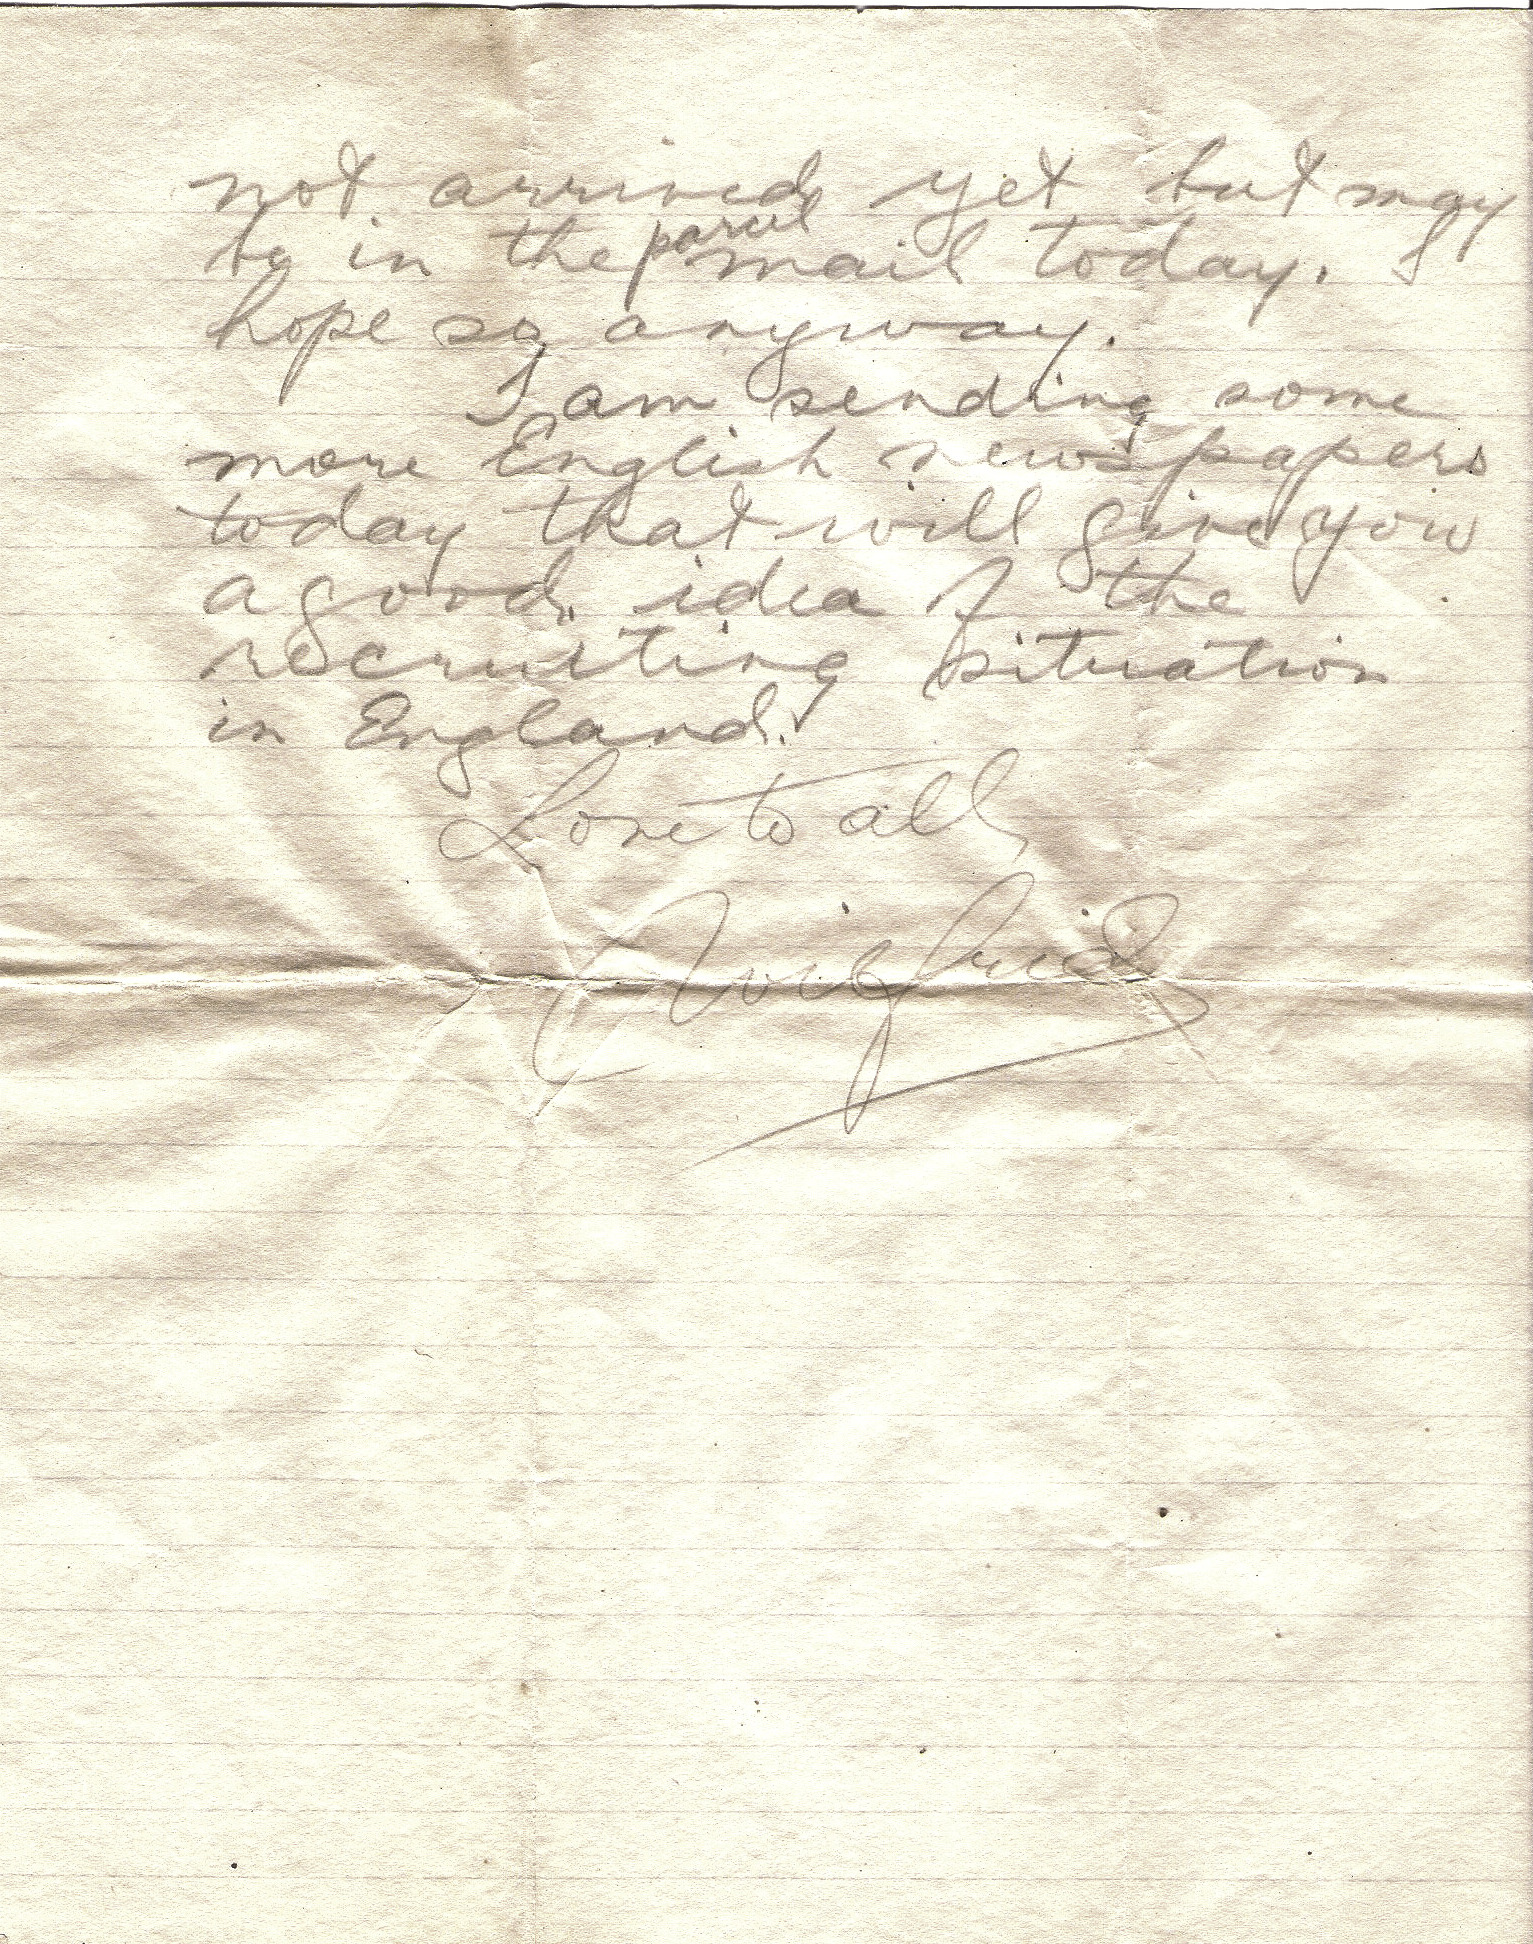 not arrived yet but may
be in the parcel mail today. I
hope so anyway.
I am sending some
more English newspapers
today that will give you
a good idea of the
recruiting situation
in England.
Love to all,
Wilfrid